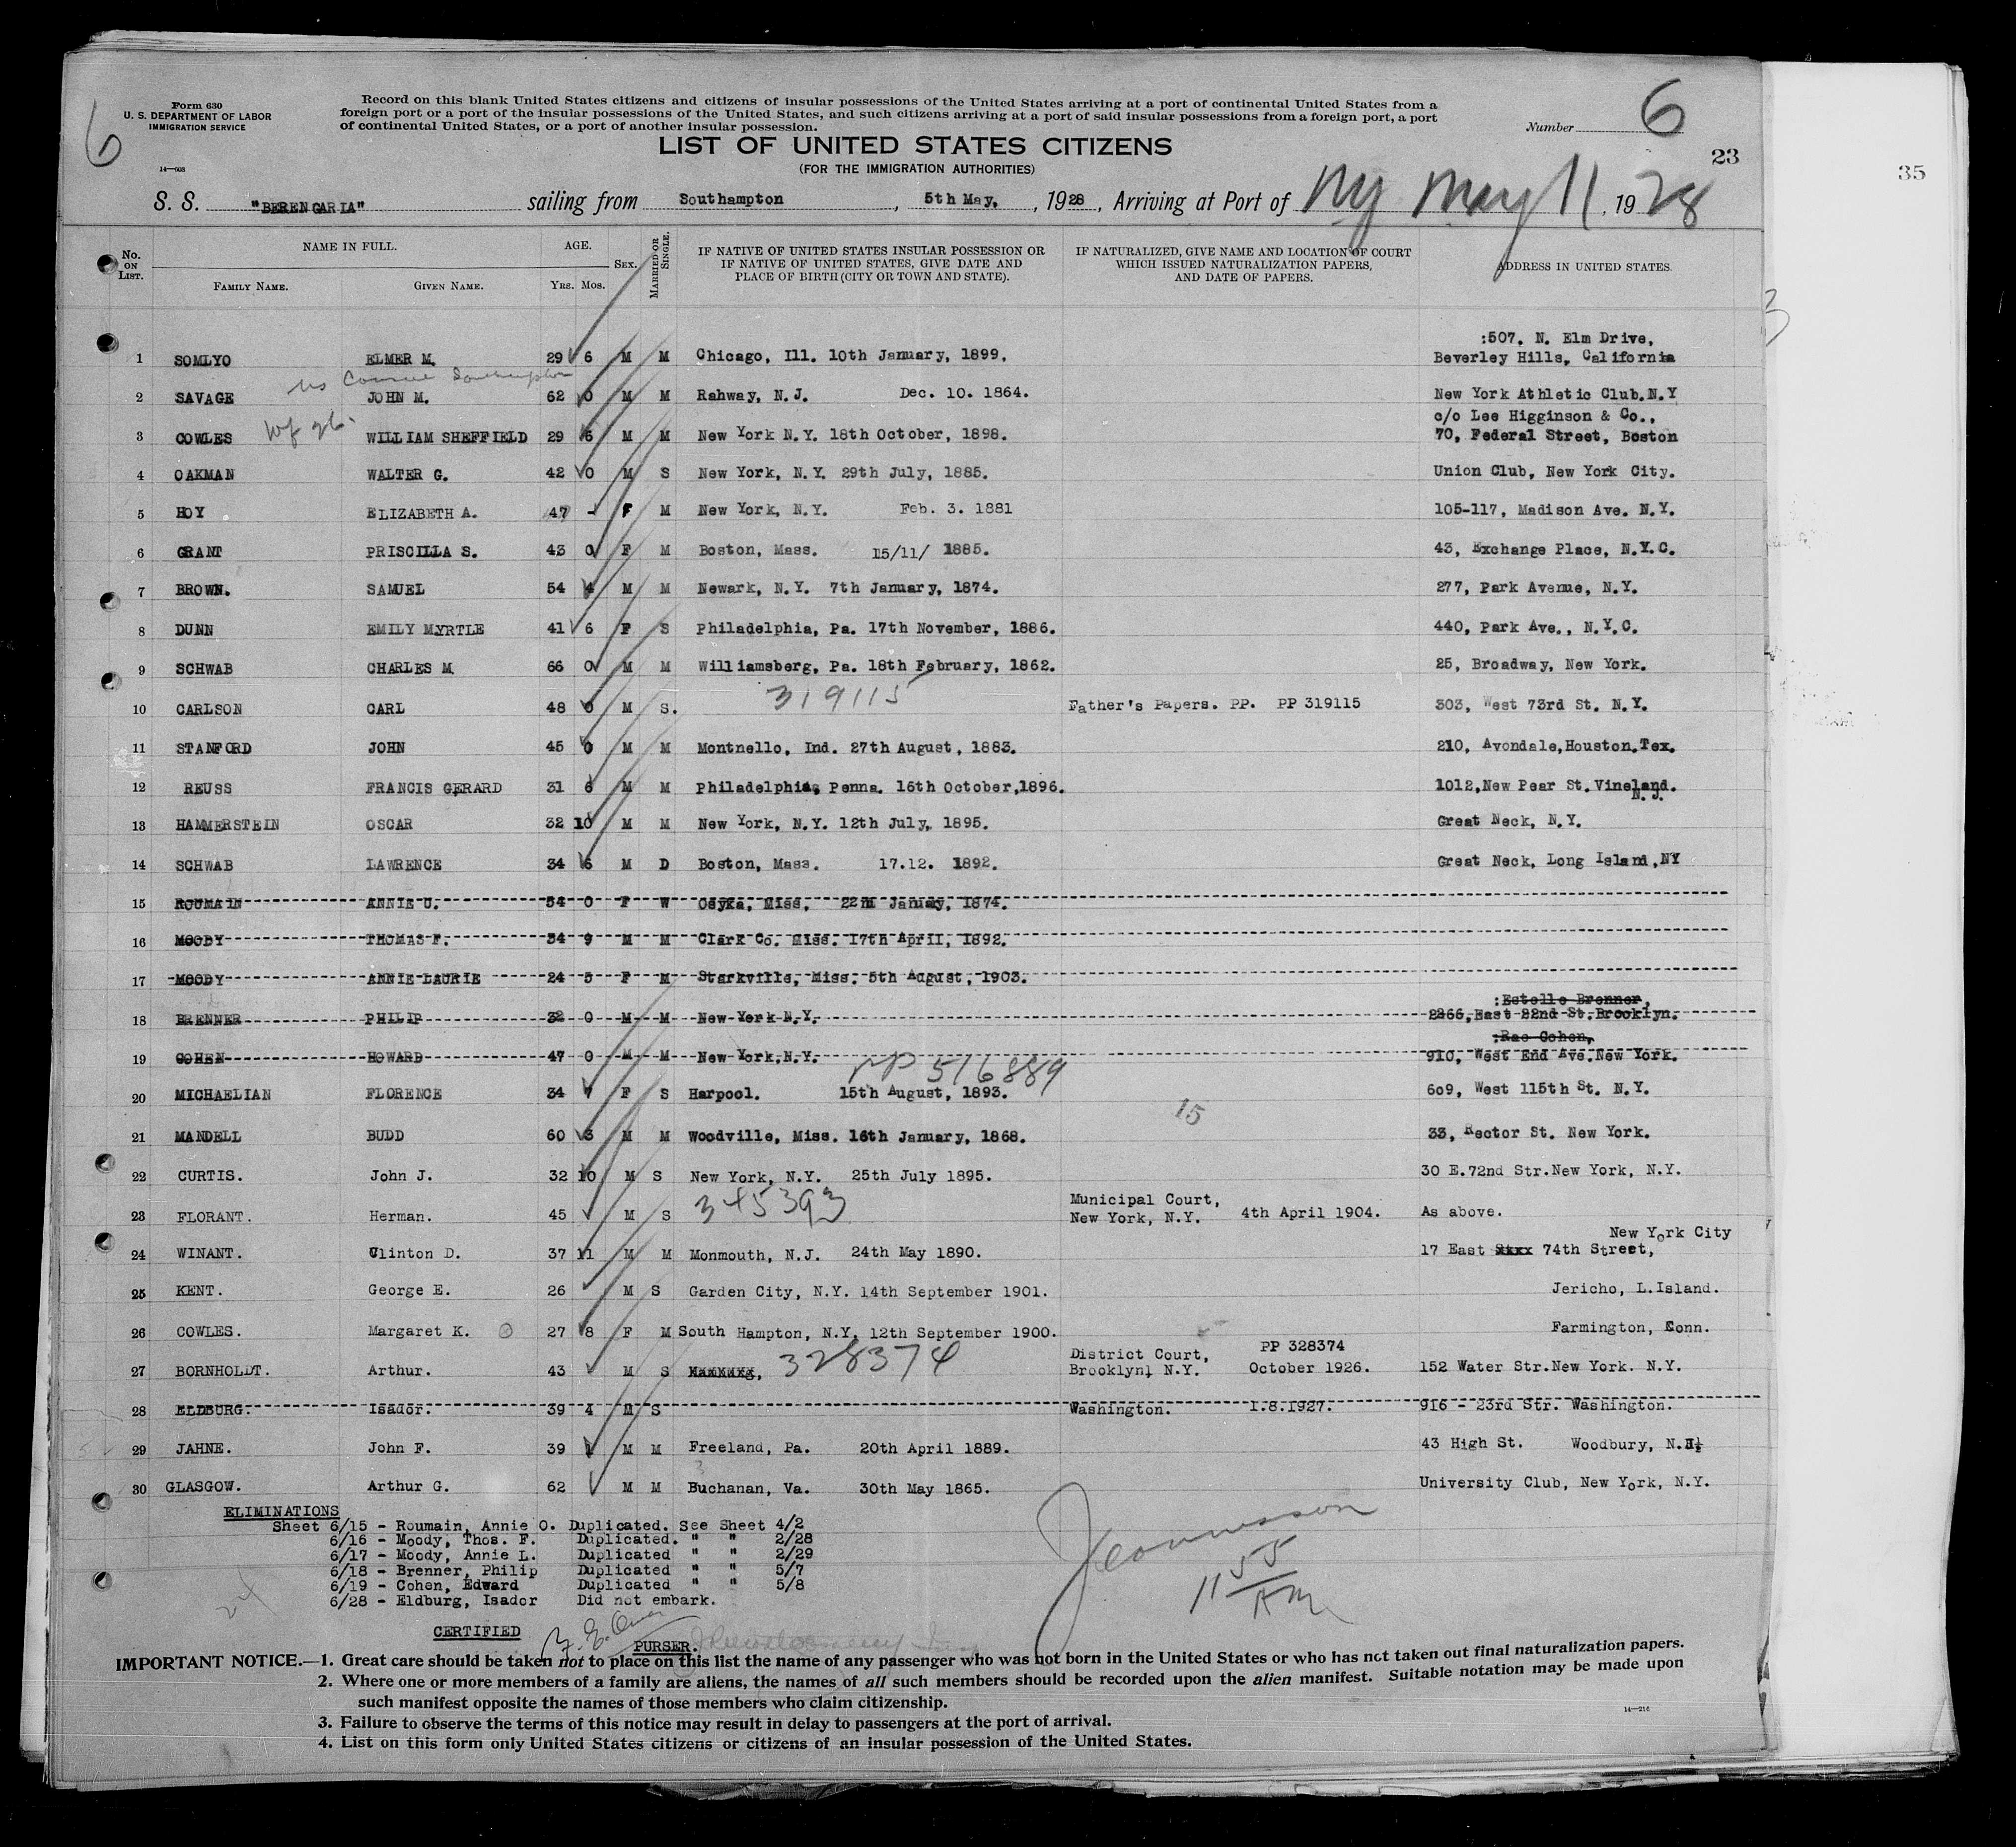 Form 630
U. S. DEPARTMENT OF LABOR
IMMIGRATION SERVICE
14—608
6
Record on this blank United States citizens and citizens of insular possessions of the United States arriving at a port of continental United States from a
foreign port or a port of the insular possessions of the United States, and such citizens arriving at a port of said insular possessions from a foreign port, a port
of continental United States, or a port of another insular possession.
Number 6
LIST OF UNITED STATES CITIZENS
(FOR THE IMMIGRATION AUTHORITIES)
23
35
S. S. "BERENGARIA" sailing from Southampton, 5th May, 1928, Arriving at Port of NY May 11, 1928
No. ON LIST. NAME IN FULL. FAMILY NAME. GIVEN NAME. AGE. YRS. MOS. SEX. MARRIED OR SINGLE. IF NATIVE OF UNITED STATES INSULAR POSSESSION OR IF NATIVE OF UNITED STATES, GIVE DATE AND PLACE OF BIRTH (CITY OR TOWN AND STATE). IF NATURALIZED, GIVE NAME AND LOCATION OF COURT WHICH ISSUED NATURALIZATION PAPERS, AND DATE OF PAPERS. ADDRESS IN UNITED STATES.
:507, N. Elm Drive,
1 SOMLYO ELMER M. 29 6 M M Chicago, Ill. 10th January, 1899. Beverley Hills, California
2 SAVAGE JOHN M. 62 0 M M Rahway, N.J. Dec. 10. 1864. New York Athletic Club.N.Y
c/o Lee Higginson & Co.,
3 COWLES WILLIAM SHEFFIELD 29 6 M M New York N.Y. 18th October, 1898. 70, Federal Street, Boston
4 OAKMAN WALTER G. 42 0 M S New York, N.Y. 29th July, 1885. Union Club, New York City.
5 HOY ELIZABETH A. 47 - F M New York, N.Y. Feb. 3. 1881 105-117, Madison Ave. N.Y.
6 GRANT PRISCILLA S. 43 0 F M Boston, Mass. 15/11/ 1885. 43, Exchange Place, N.Y.C.
7 BROWN. SAMUEL 54 4 M M Newark, N.Y. 7th January, 1874. 277, Park Avenue, N.Y.
8 DUNN EMILY MYRTLE 41 6 F S Philadelphia, Pa. 17th November, 1886. 440, Park Ave., N.Y.C.
9 SCHWAB CHARLES M. 66 0 M M Williamsberg, Pa. 18th February, 1862. 25, Broadway, New York.
319115
10 CARLSON CARL 48 0 M S. Father's Papers. PP. PP 319115 303, West 73rd St. N.Y.
11 STANFORD JOHN 45 0 M M Montnello, Ind. 27th August, 1883. 210, Avondale,Houston.Tex.
12 REUSS FRANCIS GERARD 31 6 M M Philadelphia, Penna. 16th October,1896. 1012,New Pear St.Vineland. N.J.
13 HAMMERSTEIN OSCAR 32 10 M M New York, N.Y. 12th July, 1895. Great Neck, N.Y.
14 SCHWAB LAWRENCE 34 6 M D Boston, Mass. 17.12. 1892. Great Neck, Long Island,NY
15 ROUMAIN ANNIE U. 54 0 F W Osyka, Miss, 22n January, 1874.
16 MOODY THOMAS F. 34 9 M M Clark Co. Miss. 17th April, 1892.
17 MOODY ANNIE LAURIE 24 5 F M Starkville, Miss. 5th August, 1903.
:Estelle Brenner,
18 BRENNER PHILIP 32 0 M M New York N.Y. 2266, East 22nd St.Brooklyn.
:Rae Cohen,
19 COHEN HOWARD 47 0 M M New York.N.Y. 910, West End Ave.New York.
PP 516889
20 MICHAELIAN FLORENCE 34 7 F S Harpool. 15th August, 1893. 609, West 115th St. N.Y.
15
21 MANDELL BUDD 60 3 M M Woodville, Miss. 16th January, 1868. 33, Rector St. New York.
22 CURTIS. John J. 32 10 M S New York, N.Y. 25th July 1895. 30 E.72nd Str.New York, N.Y.
345393 Municipal Court,
23 FLORANT. Herman. 45 M S New York, N.Y. 4th April 1904. As above.
New York City
24 WINANT. Clinton D. 37 11 M M Monmouth, N.J. 24th May 1890. 17 East 74th Street,
25 KENT. George E. 26 M S Garden City, N.Y. 14th September 1901. Jericho, L.Island.
26 COWLES. Margaret K. 27 8 F M South Hampton, N.Y. 12th September 1900. Farmington, Conn.
328374 District Court, PP 328374
27 BORNHOLDT. Arthur. 43 M S Brooklyn, N.Y. October 1926. 152 Water Str.New York. N.Y.
28 ELDBURG. Isador. 39 4 M S Washington. 1.8.1927. 916 - 23rd Str. Washington.
29 JAHNE. John F. 39 1 M M Freeland, Pa. 20th April 1889. 43 High St. Woodbury, N.J.
30 GLASGOW. Arthur G. 62 M M Buchanan, Va. 30th May 1865. University Club, New York, N.Y.
ELIMINATIONS
Sheet 6/15 - Roumain, Annie O. Duplicated. See Sheet 4/2
6/16 - Moody, Thos. F. Duplicated. " " 2/28
6/17 - Moody, Annie L. Duplicated " " 2/29
6/18 - Brenner, Philip Duplicated " " 5/7
6/19 - Cohen, Edward Duplicated " " 5/8
6/28 - Eldburg, Isador Did not embark.
11 55 AM
24
CERTIFIED
PURSER.
IMPORTANT NOTICE.—1. Great care should be taken not to place on this list the name of any passenger who was not born in the United States or who has not taken out final naturalization papers.
2. Where one or more members of a family are aliens, the names of all such members should be recorded upon the alien manifest. Suitable notation may be made upon
such manifest opposite the names of those members who claim citizenship.
3. Failure to observe the terms of this notice may result in delay to passengers at the port of arrival.
4. List on this form only United States citizens or citizens of an insular possession of the United States.
14—216